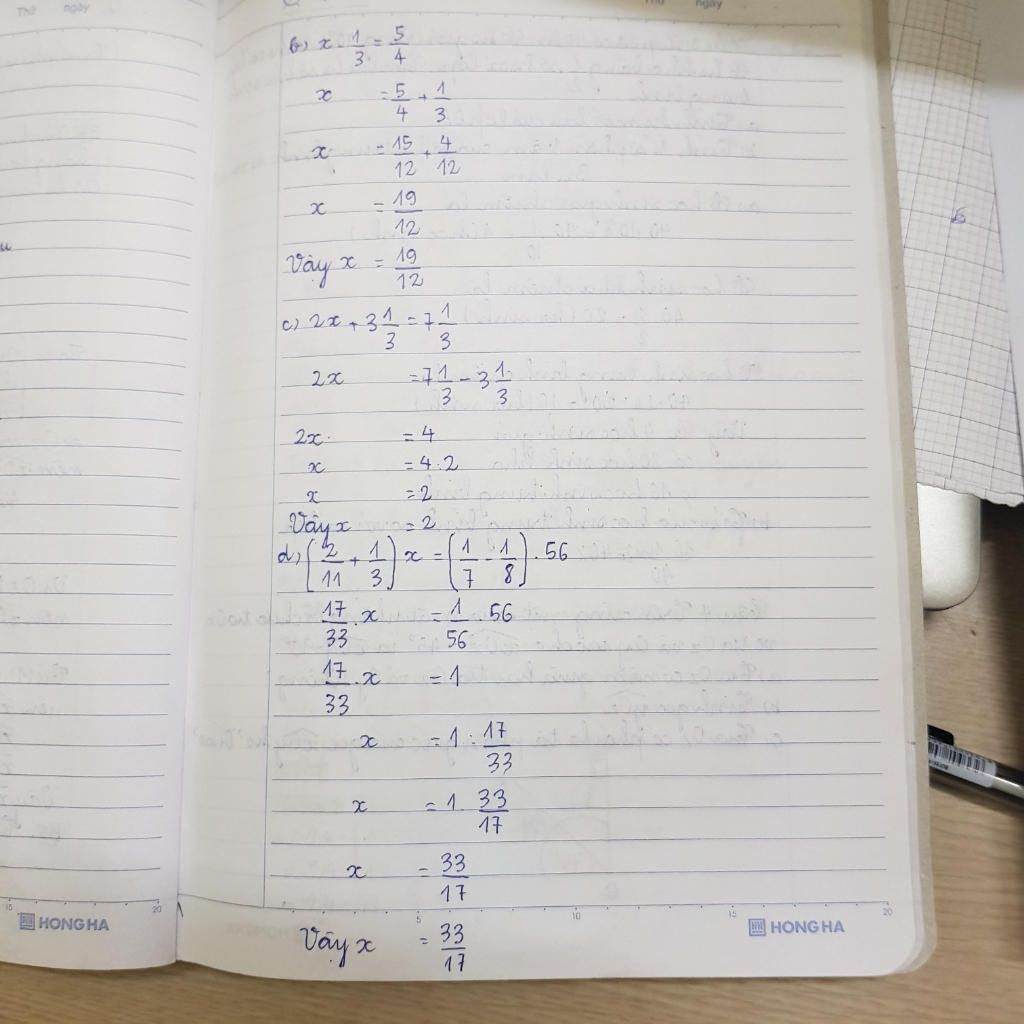 Thứ ngày
Thứ ngày
b) x 1/3 = 5/4
x = 5/4 + 1/3
x = 15/12 + 4/12
x = 19/12
Vậy x = 19/12
c) 2x + 3 1/3 = 7 1/3
2x = 7 1/3 - 3 1/3
2x = 4
x = 4 . 2
x = 2
Vậy x = 2
d) (2/11 + 1/3) x = (1/7 - 1/8) . 56
17/33 . x = 1/56 . 56
17/33 . x = 1
x = 1 : 17/33
x = 1 . 33/17
x = 33/17
15 20 HONG HA
5 10 15 20 HONG HA
Vậy x = 33/17